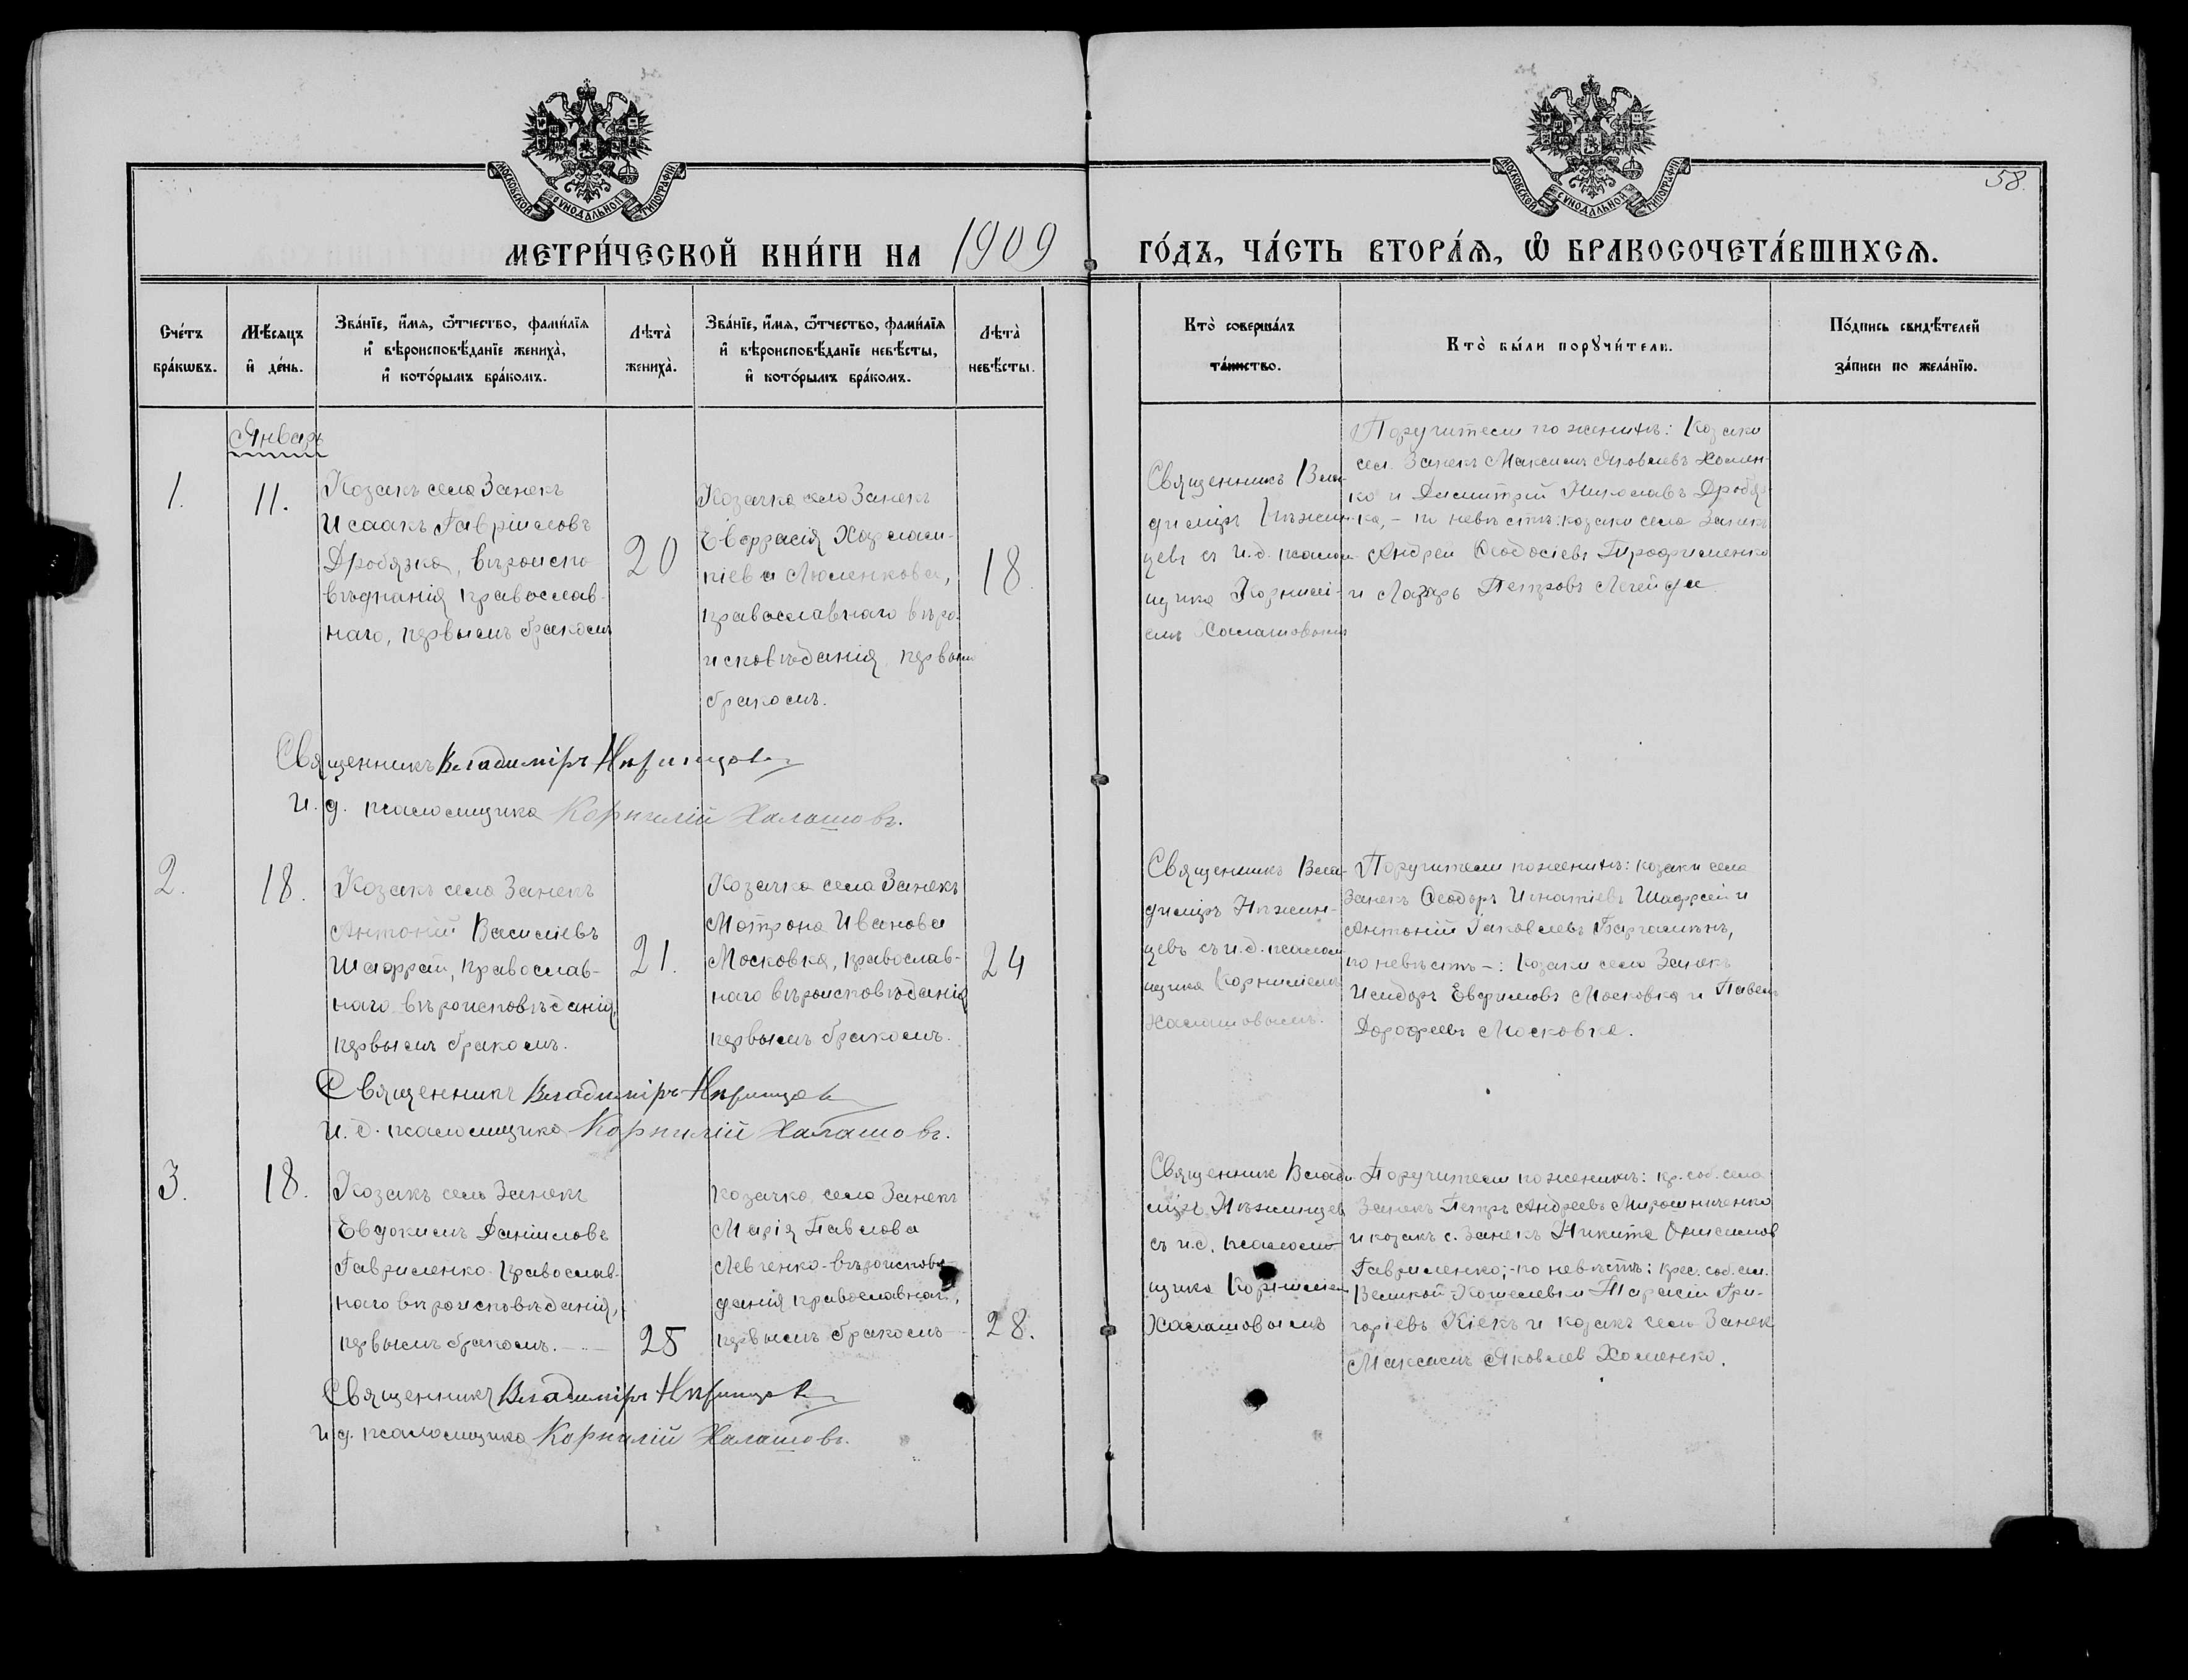 МОСКОВСКОЙ СѴНОДАЛЬНОЙ ТИПОГРАФІИ
МОСКОВСКОЙ СѴНОДАЛЬНОЙ ТИПОГРАФІИ
58.
МЕТРИ́ЧЕСКОЙ КНИ́ГИ НА 1909
ГО́ДЪ, ЧА́СТЬ ВТОРА́Ѧ, Ѽ БРАКОСОЧЕТА́ВШИХСѦ.
Сче́тъ
бра́кѡвъ.
Мѣ́сѧцъ
и҆ де́нь.
Зва́нїе, и҆́мѧ, ѻ҆́тчество, фами́лїѧ
и҆ вѣроисповѣ́данїе жениха̀,
и҆ кото́рымъ бра́комъ.
Лѣта̀
жениха̀.
Зва́нїе, и҆́мѧ, ѻ҆́тчество, фами́лїѧ
и҆ вѣроисповѣ́данїе невѣ́сты,
и҆ кото́рымъ бра́комъ.
Лѣта̀
невѣ́сты.
Кто̀ соверша́лъ
та́инство.
Кто̀ бы́ли порꙋчи́тели.
По́дпись свидѣ́телей
за́писи по жела́нїю.
Январь
1.
11.
Козакъ села Занекъ
Исаакъ Гавріиловъ
Дробязка, вѣроиспо
вѣданія православ-
наго, первымъ бракомъ
20
Козачка села Занекъ
Евфрасія Харлам-
піева Люленкова,
православнаго вѣро-
исповѣданія, первымъ
бракомъ.
18
Священникъ Вла-
димiръ Нѣжин-
цевъ съ и.д. псалом
щика Корнилі-
емъ Халашовымъ
Поручители по женихѣ: Козаки
сел. Занекъ Максимъ Яковлевъ Хомен-
ко и Димитрій Николаевъ Дробяз-
ка, - по невѣстѣ: козаки села Занекъ
Андрей Ѳеодосіевъ Трофименко
и Лазарь Петровъ Легейда
Священникъ Владиміръ Нѣжинцевъ
И. д. псаломщика Корнилій Халашовъ.
2.
18.
Козакъ села Занекъ
Антоній Василіевъ
Шафрай, православ-
наго вѣроисповѣданія,
первымъ бракомъ.
21.
Козачка села Занекъ
Мотрона Иванова
Московка, православ-
наго вѣроисповѣданія
первымъ бракомъ.
24
Священникъ Вла-
диміръ Нѣжин-
цевъ съ и.д. псалом
щика Корниліемъ
Халашовымъ.
Поручители по женихѣ: козаки села
Занекъ Ѳеодоръ Игнатіевъ Шафрай и
Антоній Іаковлевъ
по невѣстѣ -: Козаки села Занекъ
Исидоръ Евфимовъ Московка и Павелъ
Дорофеевъ Московка.
Священникъ Владиміръ Нѣжинцевъ
И. д. псаломщика Корнилій Халашовъ.
3.
18.
Козакъ села Занекъ
Евдокимъ Даніиловъ
Гавриленко православ-
наго вѣроисповѣданія,
первымъ бракомъ.
25
Козачка, села Занекъ
Марія Павлова
Левченко - вѣроисповѣ-
данія православнаго,
первымъ бракомъ
28.
Священник Влади
міръ Нѣжинцевъ
съ и.д. псалом-
щика Корниліемъ
Халашовымъ
Поручители по женихѣ: кр. соб. села
Занекъ Петръ Андреевъ Мирошниченко
и козакъ с. Занекъ Никита Онисимов
Гавриленко; - по невѣстѣ: крес. соб. сел.
Великой Кошелевки Тарасій Гри-
горіевъ Кіекъ и козакъ села Занек
Максимъ Яковлев Хоменко.
Священникъ Владиміръ Нѣжинцевъ
и д. псаломщика Корнилій Халашовъ.